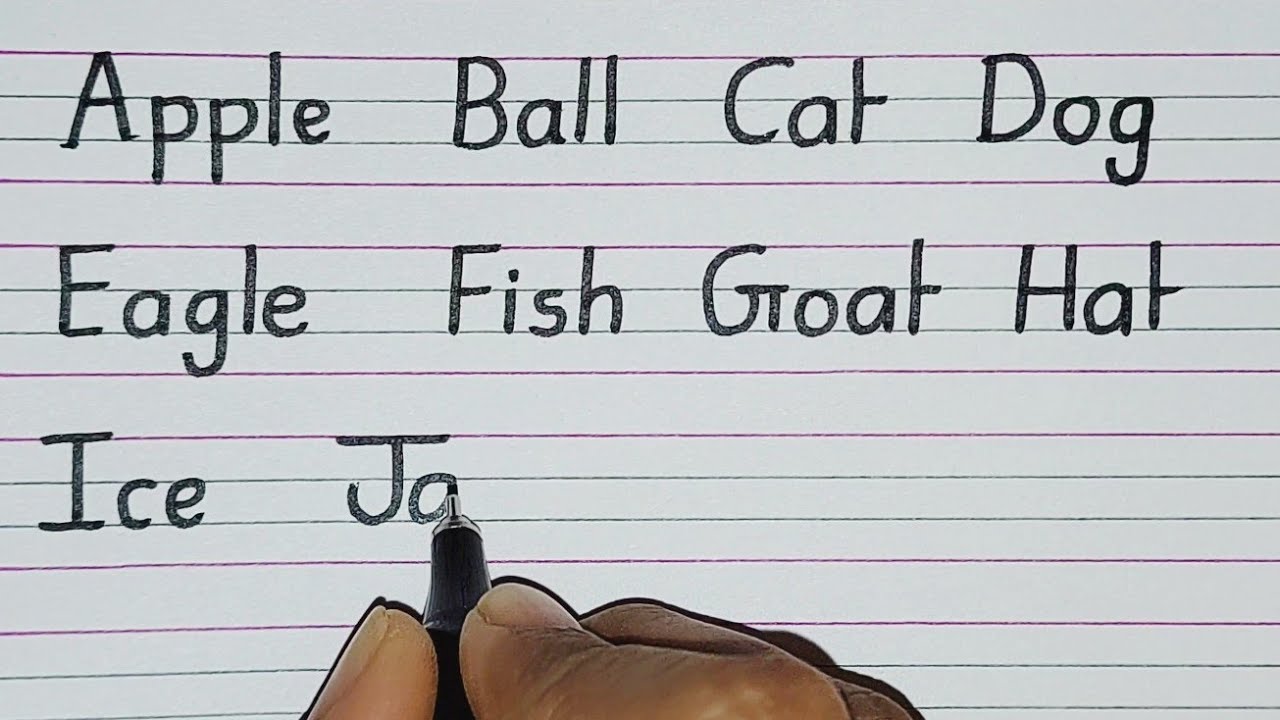 Apple Ball Cat Dog
Eagle Fish Goat Hat
Ice Ja